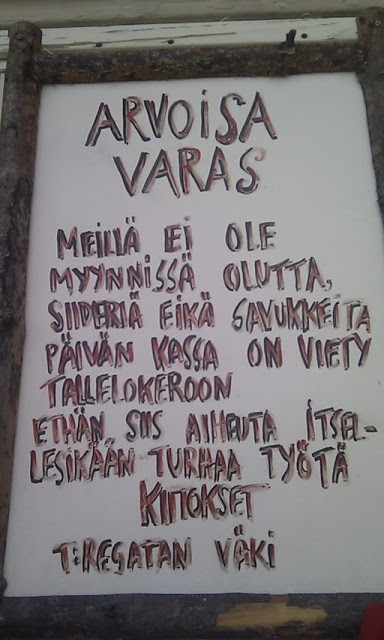 ARVOiSA
VARAS
MEILLÄ Ei OLE
MYYNNiSSÄ OLUTTA,
SiiDERiÄ EiKÄ SAVUKKEiTA
PÄIVÄN KASSA ON VIETY
TALLELOKEROON
ETHÄN SIIS AIHEUTA ITSEL-
LESIKÄÄN TURHAA TYÖTÄ
KIITOKSET
T:REGATAN VÄKI